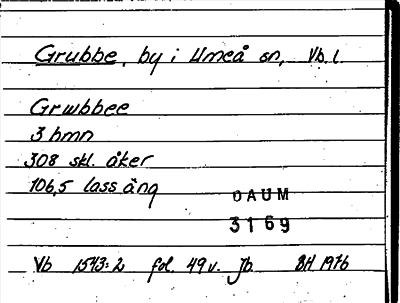 Grubbe, by i Umeå sn, Vb. l.
Grwbbee
3 hmn
308 skl. åker
106,5 lass äng
DAUM
3169
Vb 1543:2 fol. 49v. Jb BH 1976